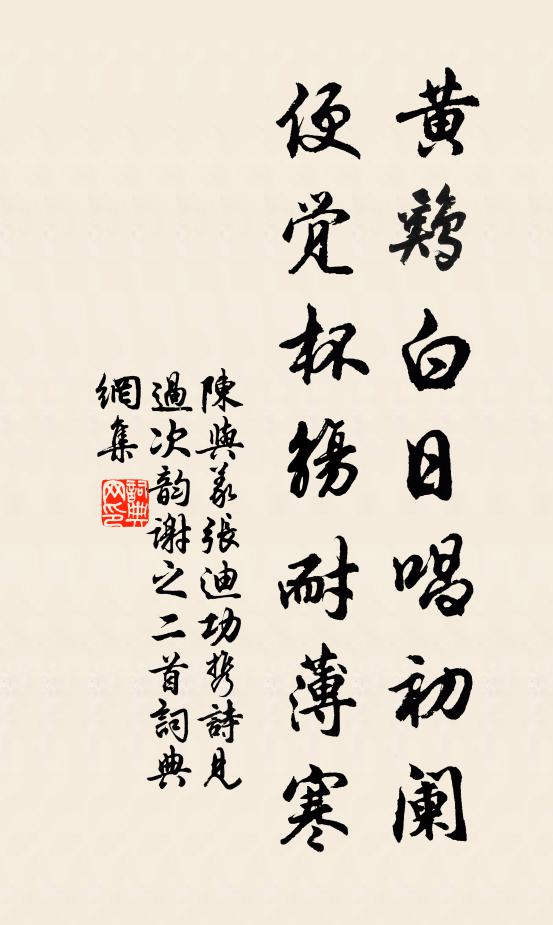 黄鷄白日唱初阑
便觉杯觞耐薄寒
陳與義張迪功携詩見
過次韵謝之二首詞典
網集
詞典
网印